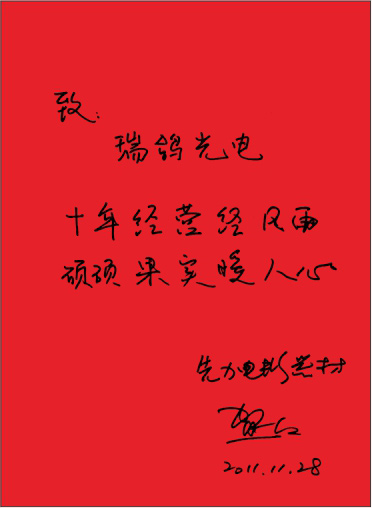 致:
瑞鸽光电
十年经营经风雨
硕硕果实暖人心
先力电影器材
2011.11.28